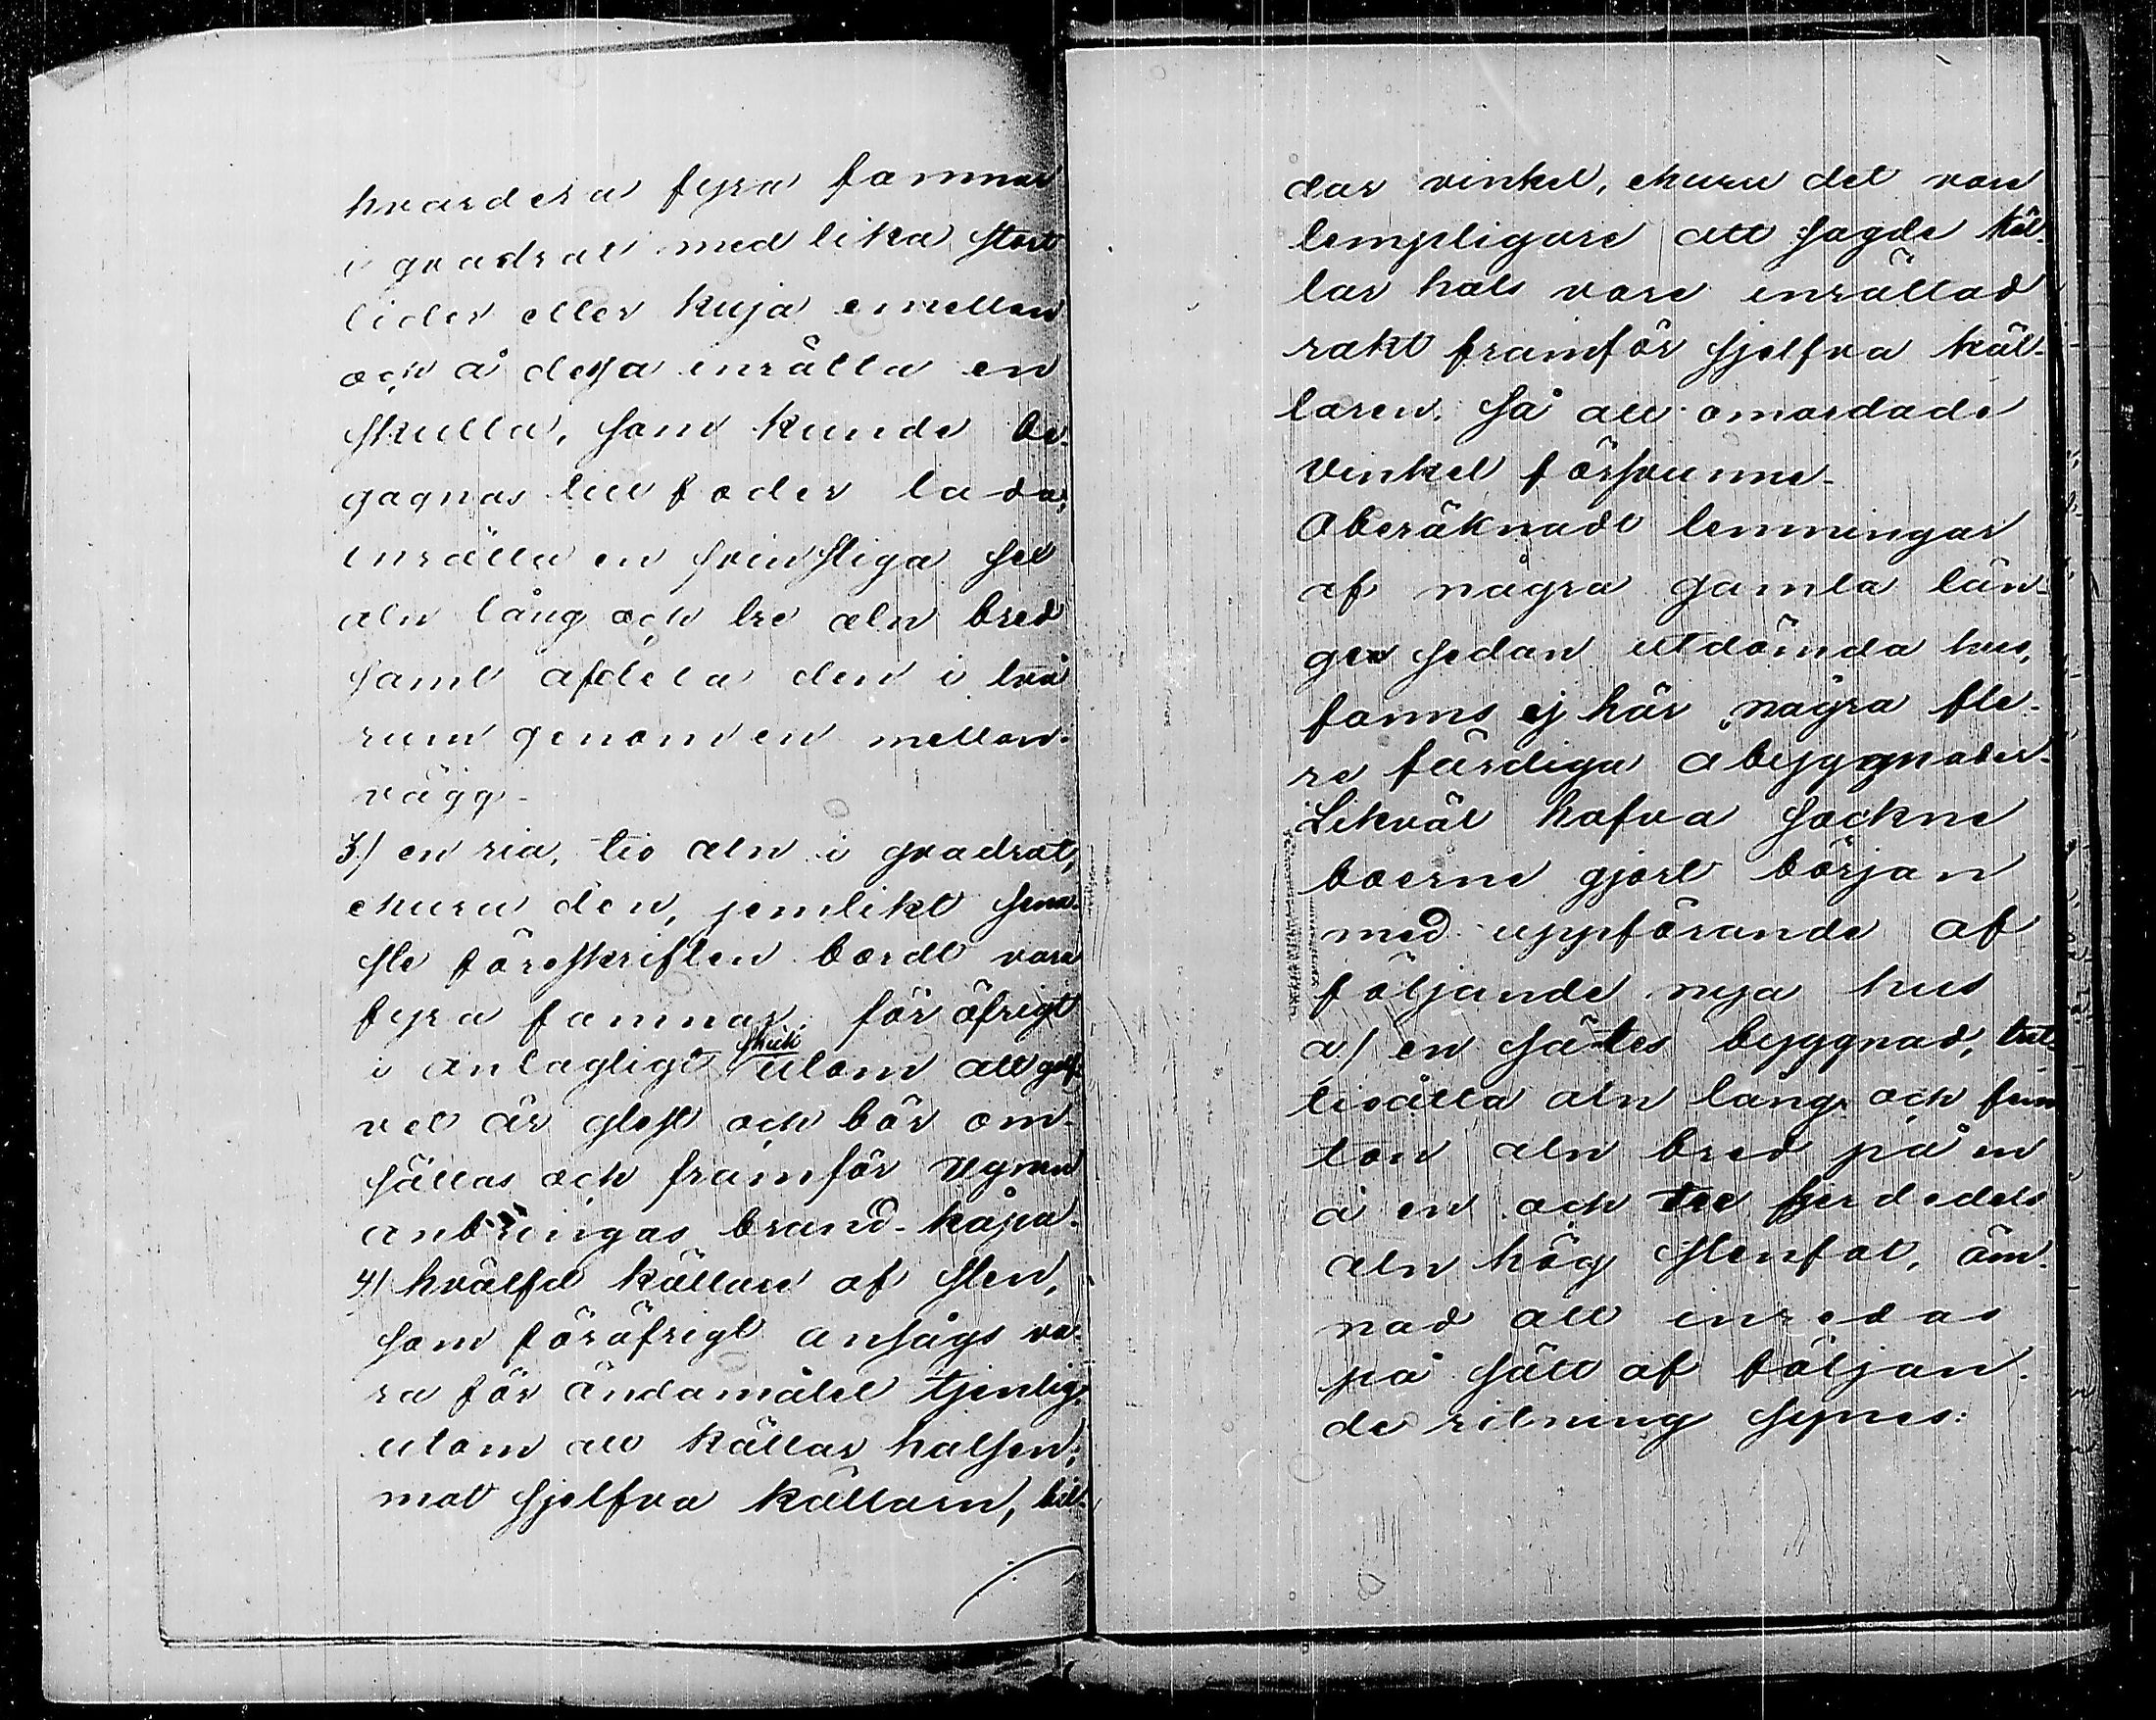 hvardera fyra famnar
i qvadrat med lika stort
lider eller kuja emellan
och å dessa inrätta en
skulla, som kunde be-
gagnas till foder lada,
inrätta en svinstiga sex
aln lång och tre aln bred
samt afdela den i två
rum genom en mellan-
vägg-
3/ en ria, tio aln i qvadrat,
ehuru den, jemlikt sena-
ste föreskriften bordt vara
fyra famnar, för öfrigt
i antagligt skick utom att golf-
vet är glest och bör om-
sättas och framför ugnen
anbringas brand-kåpa.
4/ hvälfd källare af sten,
som föröfrigt ansågs va-
ra för ändamålet tjenlig,
utom att källar halsen,
mot sjelfva källarn, bil-
dar vinkel, ehuru det vore
lempligare att sagde käl-
lar hals vore inrättad
rakt framför sjelfva käl-
laren, så att omordade
vinkel försvunne.
Oberäknadt lemningar
af några gamla län-
gen sedan utdömda hus,
fanns ej här några fle-
re färdiga åbyggnader.
Likväl hafva sockne
boerne gjort början
med uppförande af
följande nya hus
a/ en sätes byggnad, tret-
tioåtta aln lång och fem
ton aln bred på en
à en och tre fjerdedels
aln hög stenfot, äm-
nad att inredas
på sätt af följan-
de ritning synes: